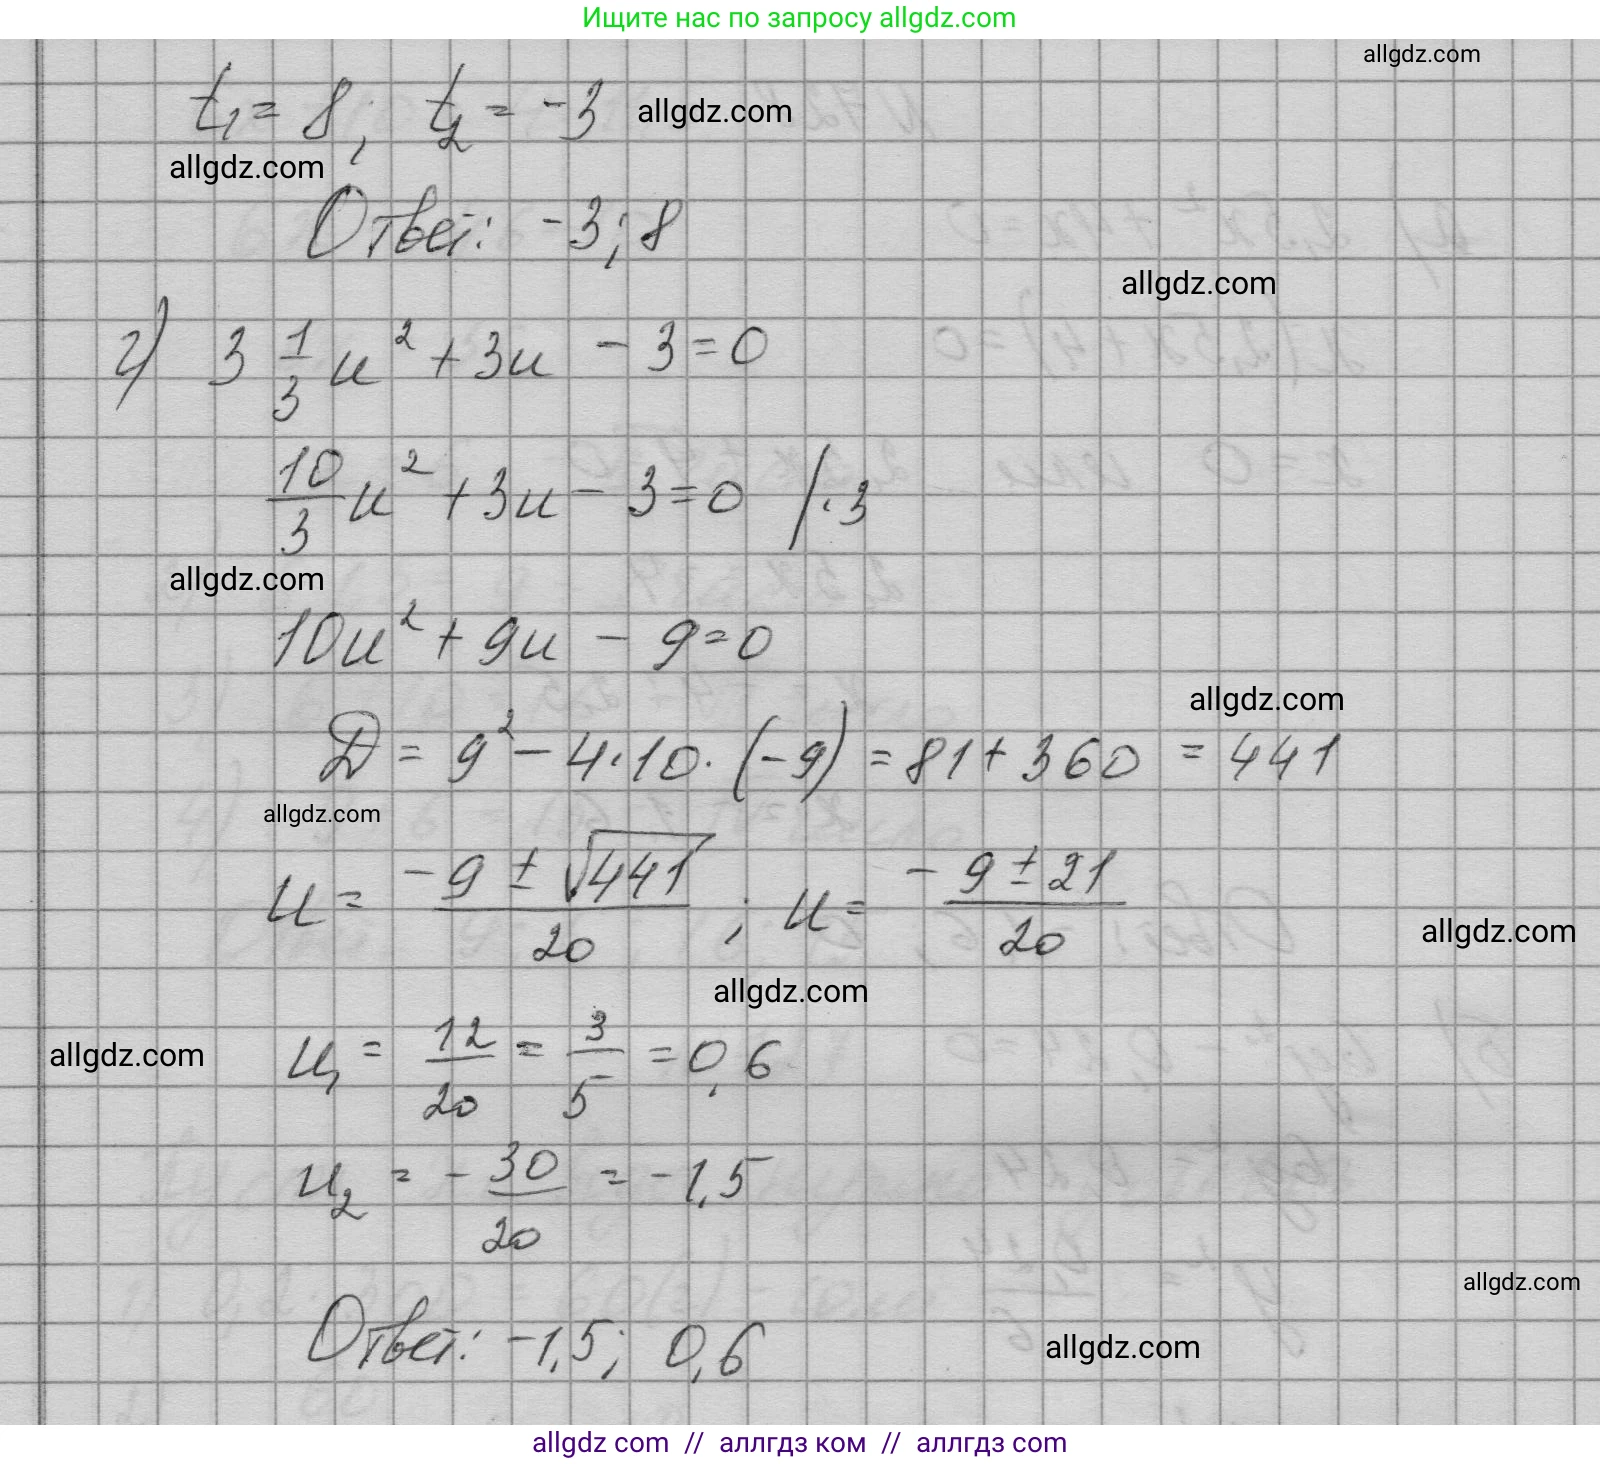 Ищите нас по запросу allgdz.com
allgdz.com
t₁ = 8; t₂ = -3 allgdz.com
allgdz.com
Ответ: -3; 8
allgdz.com
г) 3 1/3 u² + 3u - 3 = 0
10/3 u² + 3u - 3 = 0 / · 3
allgdz.com
10u² + 9u - 9 = 0
allgdz.com
D = 9² - 4 · 10 · (-9) = 81 + 360 = 441
allgdz.com
u = (-9 ± √441)/20 ; u = (-9 ± 21)/20
allgdz.com
allgdz.com
allgdz.com
u₁ = 12/20 = 3/5 = 0,6
u₂ = -30/20 = -1,5
allgdz.com
Ответ: -1,5; 0,6
allgdz.com
allgdz com // аллгдз ком // аллгдз com